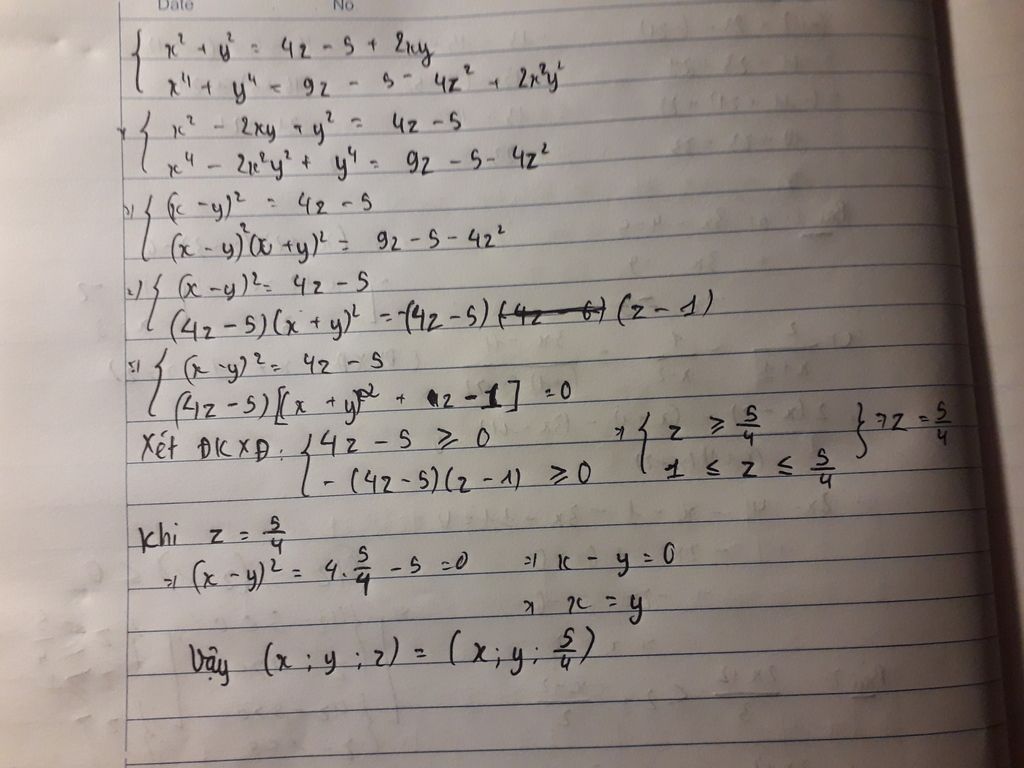 Date No
x² + y² = 4z - 5 + 2xy
x⁴ + y⁴ = 9z - 5 - 4z² + 2x²y²
x² - 2xy + y² = 4z - 5
x⁴ - 2x²y² + y⁴ = 9z - 5 - 4z²
(x - y)² = 4z - 5
(x - y)²(x + y)² = 9z - 5 - 4z²
(x - y)² = 4z - 5
(4z - 5)(x + y)² = -(4z - 5) (z - 1)
(x - y)² = 4z - 5
(4z - 5)[(x + y)² + z - 1] = 0
Xét ĐKXĐ: { 4z - 5 ≥ 0 => { z ≥ 5/4 } => z = 5/4
- (4z - 5)(z - 1) ≥ 0 1 ≤ z ≤ 5/4
Khi z = 5/4
=> (x - y)² = 4. 5/4 - 5 = 0 => x - y = 0
=> x = y
Vậy (x ; y ; z) = (x ; y ; 5/4)